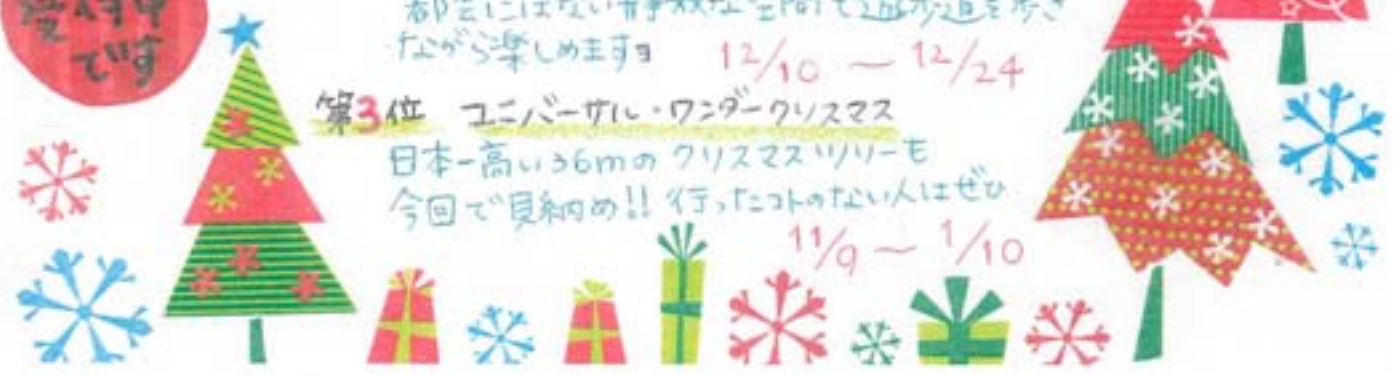 受付中
です
都会にはない静寂な空間で遊歩道を歩き
ながら楽しめますョ
12/10 ～ 12/24
第3位 ユニバーサル・ワンダークリスマス
日本一高い36mの クリスマスツリーも
今回で見納め!! 行ったコトのない人はぜひ
11/9 ～ 1/10